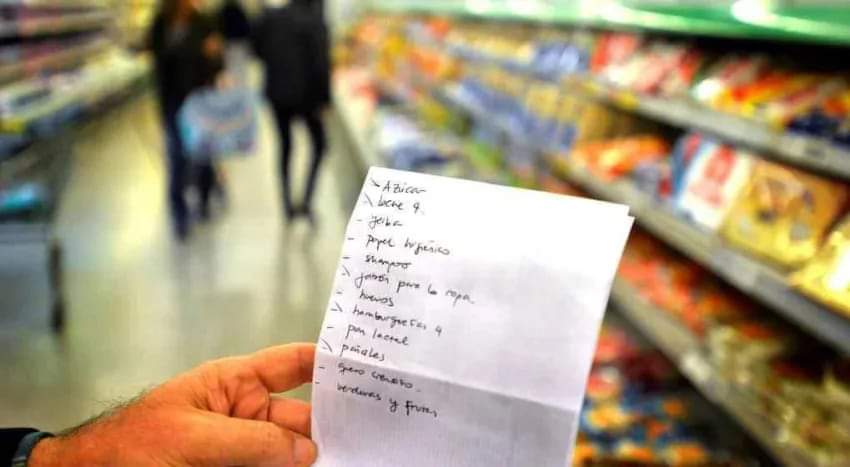 \ Azúcar
\ leche 4.
- yerba
- papel higiénico
- shampoo
\ jabón para la ropa
- huevos
\ hamburguesas 4
- pan lactal
\ pañales
- queso cremoso.
- verduras y frutas